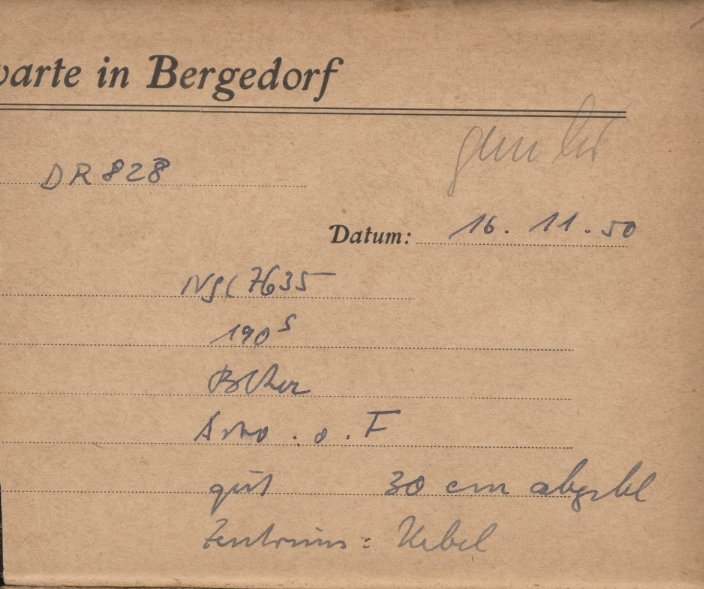 warte in Bergedorf
DR 828
Datum: 16. 11. 50
NGC 7635
190 s
. o. F
gut 30 cm abgebl
Zentrum: Nebel